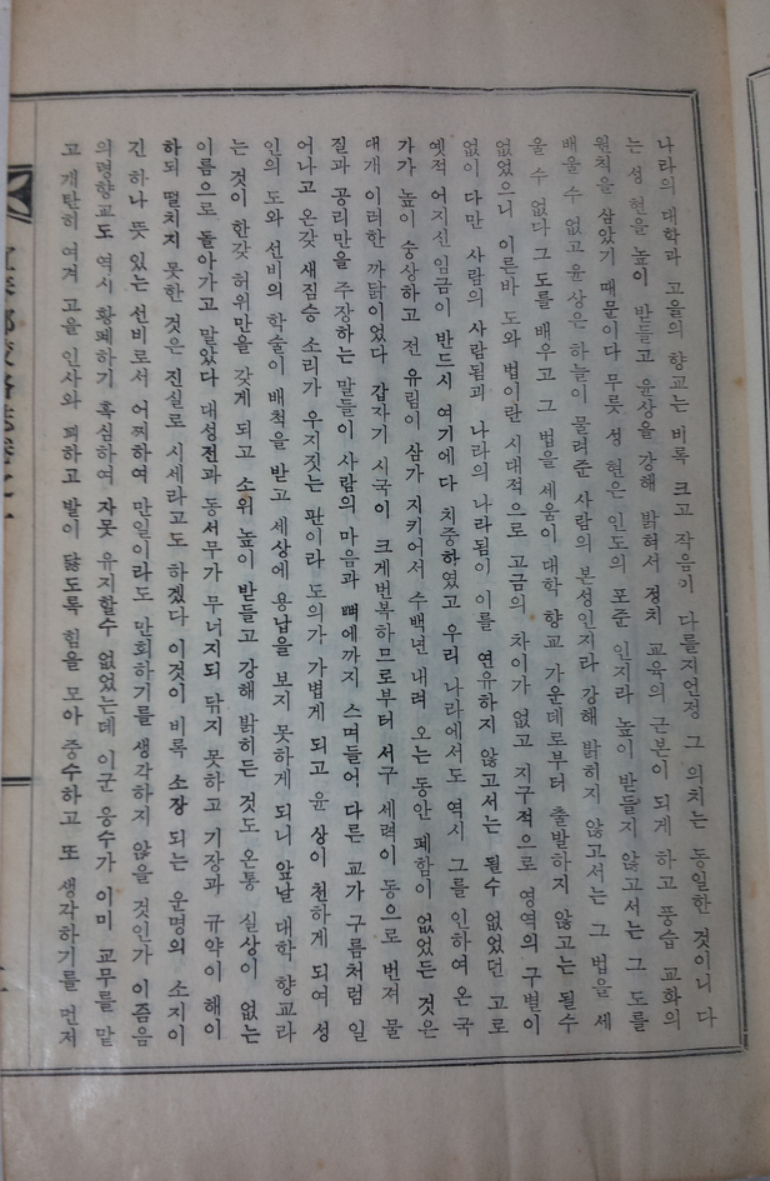 나라의 대학과 고을의 향교는 비록 크고 작음이 다를지언정 그 의치는 동일한 것이니 다
는 성현을 높이 받들고 윤상을 강해 밝혀서 정치 교육의 근본이 되게 하고 풍습 교화의
원칙을 삼았기 때문이다 무릇 성현은 인도의 표준 인지라 높이 받들지 않고서는 그 도를
배울 수 없고 윤상은 하늘이 물려준 사람의 본성인지라 강해 밝히지 않고서는 그 법을 세
울 수 없다 그 도를 배우고 그 법을 세움이 대학 향교 가운데로부터 출발하지 않고는 될수
없었으니 이른바 도와 법이란 시대적으로 고금의 차이가 없고 지구적으로 영역의 구별이
없이 다만 사람의 사람됨괴 나라의 나라됨이 이를 연유하지 않고서는 될수 없었던 고로
옛적 어지신 임금이 반드시 여기에다 치중하였고 우리 나라에서도 역시 그를 인하여 온 국
가가 높이 숭상하고 전 유림이 삼가 지키어서 수백년 내려 오는 동안 폐함이 없었든 것은
대개 이러한 까닭이었다 갑자기 시국이 크게번복하므로부터 서구 세력이 동으로 번져 물
질과 공리만을 주장하는 말들이 사람의 마음과 뼈에까지 스며들어 다른 교가 구름처럼 일
어나고 온갖 새짐승 소리가 우지짓는 판이라 도의가 가볍게 되고 윤 상이 천하게 되여 성
인의 도와 선비의 학술이 배척을 받고 세상에 용납을 보지 못하게 되니 앞날 대학 향교라
는 것이 한갖 허위만을 갖게 되고 소위 높이 받들고 강해 밝히든 것도 온통 실상이 없는
이름으로 돌아가고 말았다 대성전과 동서무가 무너지되 닦지 못하고 기장과 규약이 해이
하되 떨치지 못한 것은 진실로 시세라고도 하겠다 이것이 비록 소장 되는 운명의 소지이
긴 하나 뜻 있는 선비로서 어찌하여 만일이라도 만회하기를 생각하지 않을 것인가 이즘음
의령향교도 역시 황폐하기 혹심하여 자못 유지할수 없었는데 이군 응수가 이미 교무를 맡
고 개탄히 여겨 고을 인사와 꾀하고 발이 닳도록 힘을 모아 중수하고 또 생각하기를 먼저